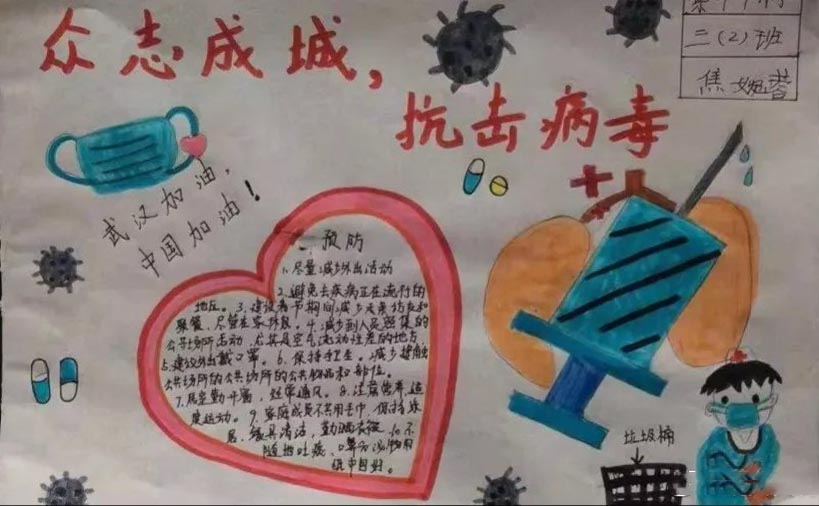 众志成城，
抗击病毒
二(2)班
焦婉蓉
武汉加油，
中国加油！
预防
1.尽量减少外出活动
2.避免去疾病正在流行的
地区。3.建议春节期间减少走亲访友和
聚餐，尽量在家休息。4.减少到人员密集的
公共场所活动，尤其是空气流动性差的地方
5.建议外出戴口罩。6.保持手卫生。减少接触
公共场所的公共场所的公共物品和部位。
7.居室勤开窗，经常通风。8.注意营养，适
度运动。9.家庭成员不共用毛巾，保持家
居、餐具清洁，勤晒衣被。10.不
随地吐痰，口鼻分泌物用
纸巾包好。
垃圾桶